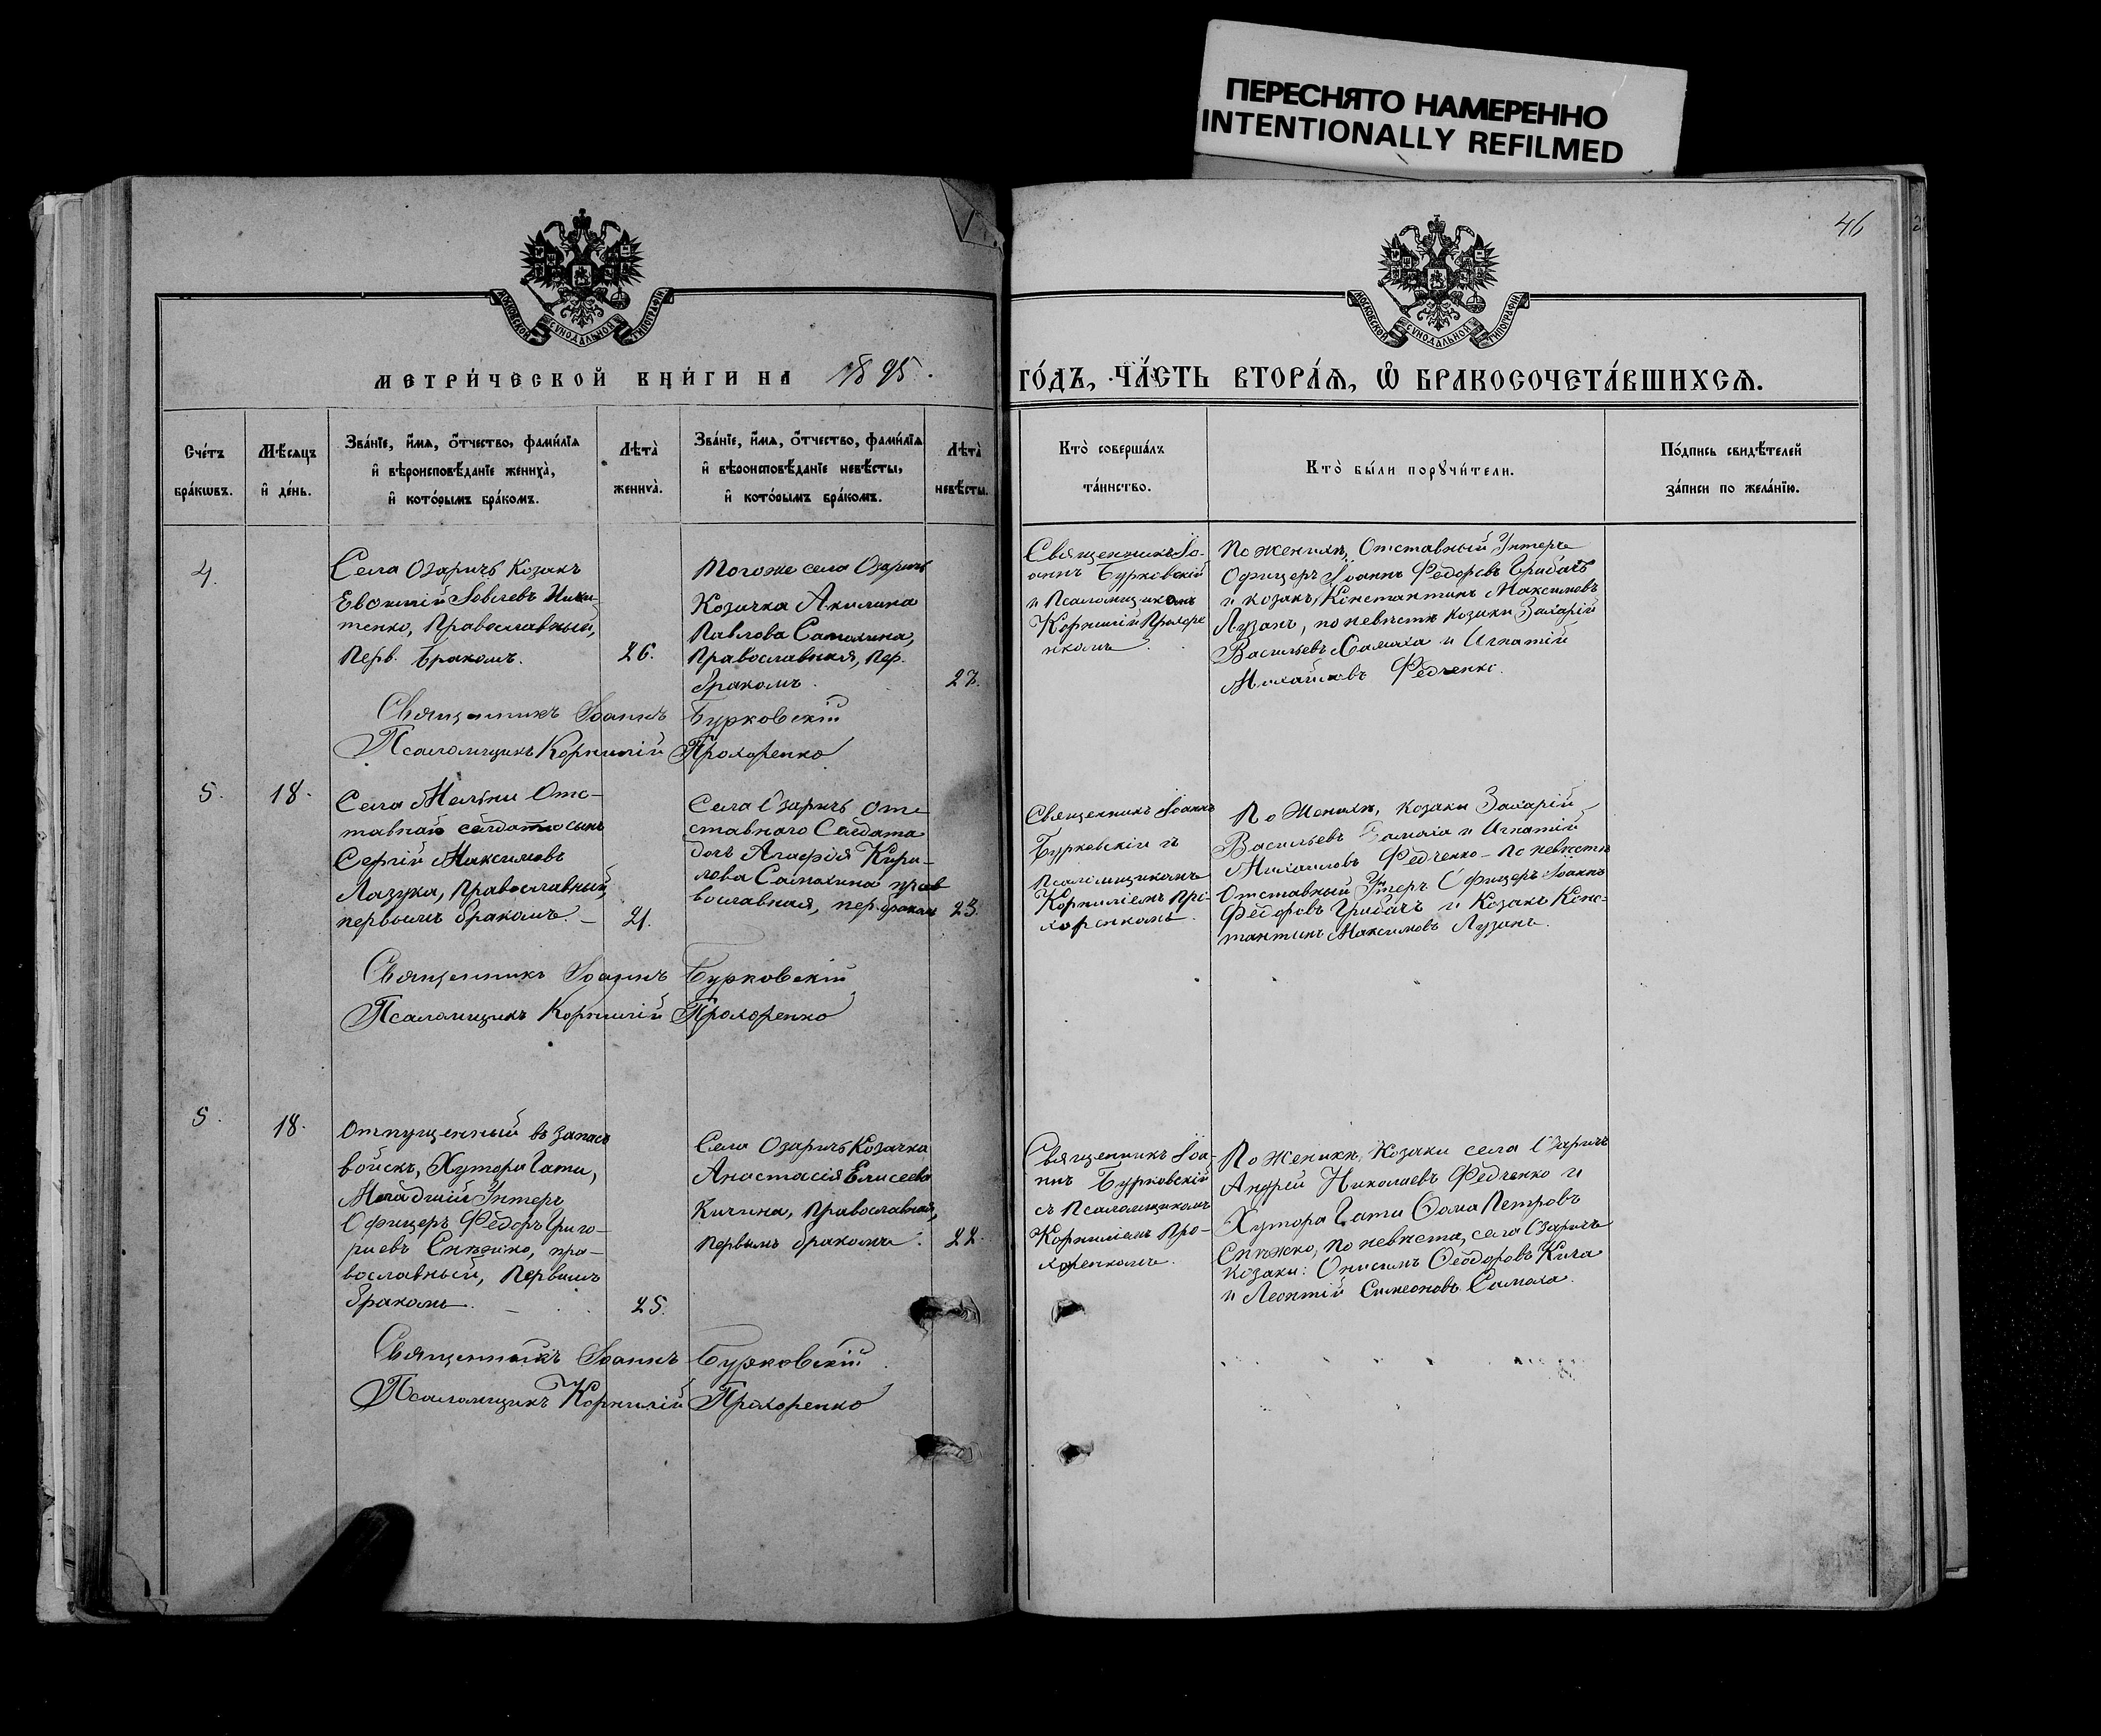 ПЕРЕСНЯТО НАМЕРЕННО
INTENTIONALLY REFILMED
46
МОСКОВСКОЙ СУНОДАЛЬНОЙ ТИПОГРАФІИ
МОСКОВСКОЙ СУНОДАЛЬНОЙ ТИПОГРАФІИ
МЕТРИ́ЧЕСКОЙ КНИ́ГИ НА 1895.
ГО́ДЪ, ЧА́СТЬ ВТОРА́Я, Ѡ҆ БРАКОСОЧЕТА́ВШИХСЯ.
Сче́тъ
бра́кѡвъ.
Мѣ́сяцъ
и҆ де́нь.
Зва́нїе, и҆́мя, о҆́тчество, фами́лїя
и҆ вѣроисповѣ́данїе жениха̀,
и҆ кото́рымъ бра́комъ.
Лѣта̀
жениха̀.
Зва́нїе, и҆́мя, о҆́тчество, фами́лїя
и҆ вѣроисповѣ́данїе невѣ́сты,
и҆ кото́рымъ бра́комъ.
Лѣта̀
невѣ́сты.
Кто̀ соверша́лъ
та́инство.
Кто̀ бы́ли порꙋчи́тели.
По́дпись свидѣ́телей
за́писи по жела́нїю.
4.
Села Озаричъ Козакъ
Евфимій Іовлевъ Ники-
тенко, Православный,
Перв. бракомъ.
26.
Тогоже села Озаричъ
Козачка Акилина
Павлова Самохина,
Православная, пер.
бракомъ.
27.
Священникъ Іо-
аннъ Бурковскій
и Псаломщикомъ
Корнилій Прохоре
нкомъ
По женихѣ, Отставный Унтеръ
Офицеръ Іоаннъ Федоровъ Грибачъ
и козакъ, Константинъ Максимовъ
Лузанъ, по невѣстѣ козаки Захарій
Васильевъ Самаха и Игнатій
Михайловъ Федченко.
Священникъ Іоаннъ Бурковскій
Псаломщикъ Корнилій Прохоренко
5.
18.
Села Мельни Отс-
тавнаго солдата сынъ
Сергій Максимовъ
Лазука, православный,
первымъ бракомъ. —
21.
Села Озаричъ От
ставнаго Солдата
дочь Агафія Кири-
лова Самохина прав
вославная, пер. бракомъ
23.
Священникъ Іоаннъ
Бурковскій съ
Псаломщикомъ
Корниліемъ Про-
хоренкомъ.
По Женихѣ, козаки Захарій
Васильевъ Самаха и Игнатій
Михаиловъ Федченко — По невѣстѣ
Отставный Унтеръ Офицеръ Іоаннъ
Федоровъ Грибачъ и Козакъ Конс-
тантинъ Максимовъ Лузанъ.
Священникъ Іоаннъ Бурковскій
Псаломщикъ Корнилій Прохоренко
5.
18.
Отпущенный въ запасъ
войскъ, Хутора Гати,
Младшій Унтеръ
Офицеръ Федоръ Григо-
риевъ Снѣжко, пра-
вославный, Первымъ
бракомъ. —
25.
Села Озаричъ Козачка
Анастасія Елисеева
Кичина, Православная,
Первымъ бракомъ.
22.
Священникъ Іоа-
ннъ Бурковскій
съ Псаломщикомъ
Корниліемъ Про-
хоренкомъ.
По Женихѣ, Козаки села Озаричъ
Андрей Николаевъ Федченко и
Хутора Гати Ѳома Петровъ
Снѣжко, по невѣста, села Озаричъ
козаки: Онисимъ Ѳеодоровъ Кича
и Леонтій Симеоновъ Самаха.
Священникъ Іоаннъ Бурковскій
Псаломщикъ Корнилій Прохоренко